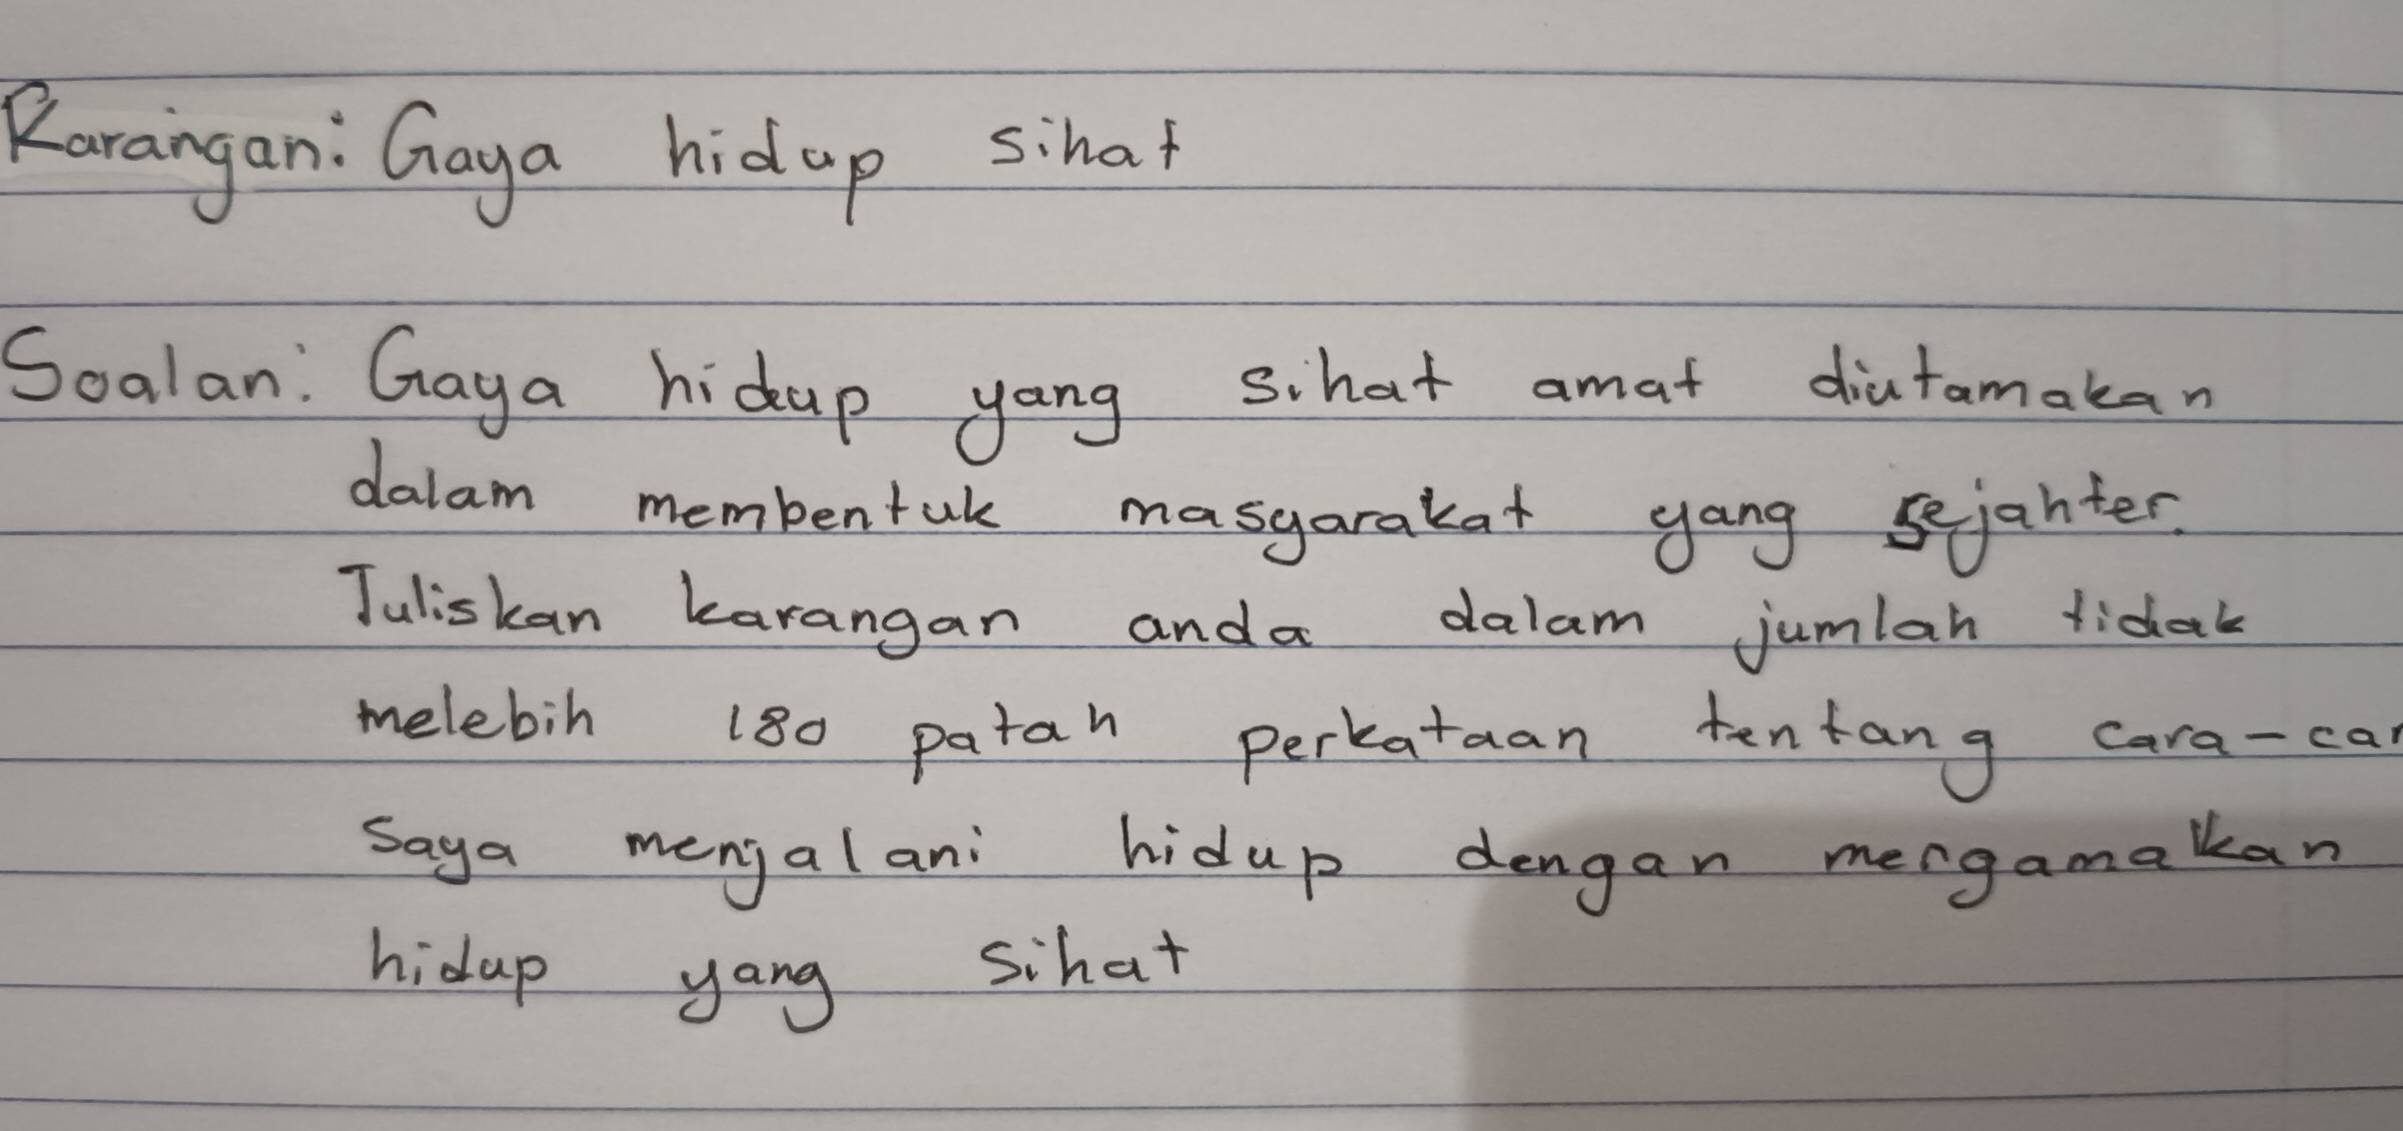 Karangan: Gaya hidup sihat
Soalan: Gaya hidup yang sihat amat diutamakan
dalam membentuk masyarakat yang sejahter.
Tuliskan karangan anda dalam jumlah tidak
melebih 180 patah perkataan tentang cara-car
saya menjalani hidup dengan mengamalkan
hidup yang sihat